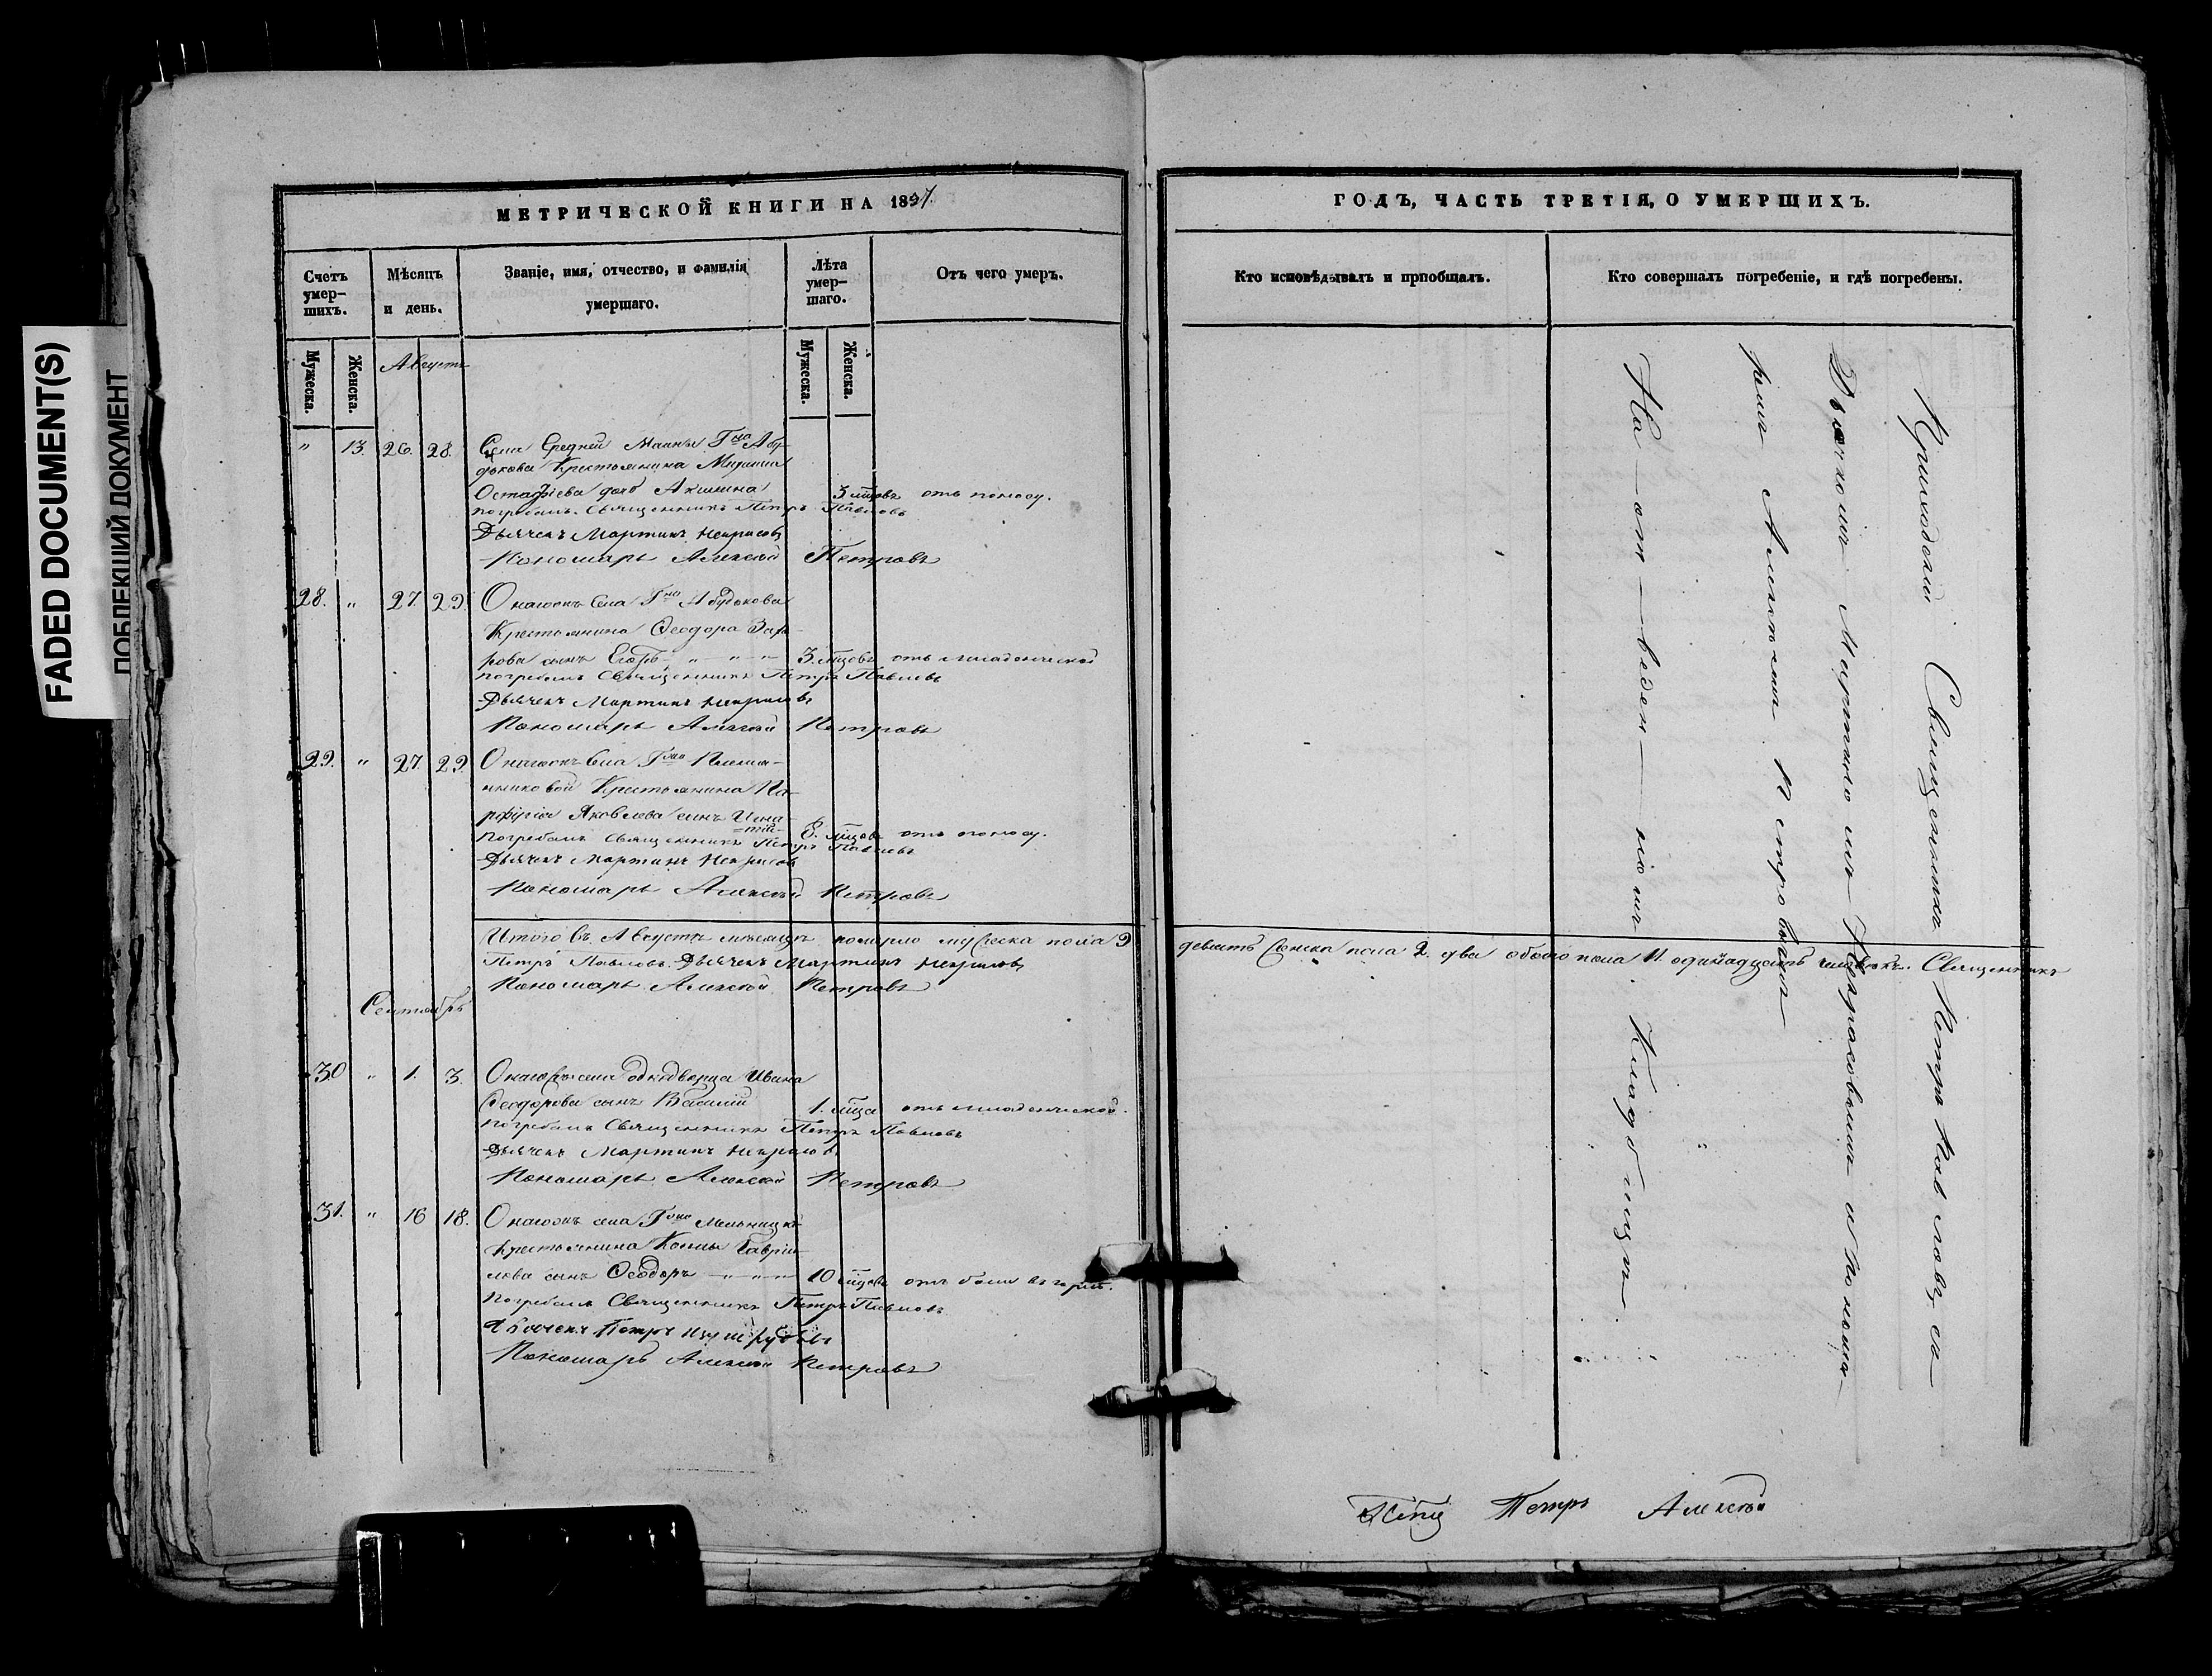 FADED DOCUMENT(S)
ПОБЛЕКШИЙ ДОКУМЕНТ
МЕТРИЧЕСКОЙ КНИГИ НА 1837.
Счетъ умер-шихъ.
Мѣсяцъ и день.
Званіе, имя, отчество, и фамилія умершаго.
Лѣта умер-шаго.
Отъ чего умеръ.
Мужеска.
Женска.
Мужеска.
Женска.
Августъ
" 13. 26. 28. Села Средней Маткы Гна Абу-
дькова Крестьянина
Остафіева дочь Акилина 3 мцовъ отъ поносу.
Погребалъ Священникъ Петръ Павловъ
Дьячекъ Мартинъ Некрасовъ
Пономарь Алексѣй Петровъ
28. " 27. 29. Онагожъ Села Гна Абудькова
Крестьянина Ѳеодора Заха-
рова сынъ Егоръ " " " 3. мцовъ отъ младенческой
Погребалъ Священникъ Петръ Павловъ
Дьячекъ Мартинъ Некрасовъ
Пономарь Алексѣй Петровъ
29. " 27. 29. Онагожъ Села Гжи
Крестьянина По-
рфирія Яковлева сынъ Игна-
=тій= 8. мцовъ отъ поносу.
Погребалъ Священникъ Петръ Павловъ
Дьячекъ Мартинъ Некрасовъ
Пономарь Алексѣй Петровъ
Итого въ Августѣ мѣсяцѣ померло мужеска пола 9
Петръ Павловъ. Дьячекъ Мартинъ Некрасовъ
Пономарь Алексѣй Петровъ
Сентябрь
30 " 1. 3. Онагожъ села однодворца Ивана
Ѳеодорова сынъ Василій 1. мца отъ младенческой.
Погребалъ Священникъ Петръ Павловъ
Дьячекъ Мартинъ Некрасовъ
Пономарь Алексѣй Петровъ
31. " 16 18. Онагожъ села Гна
Крестьянина Козмы Гаври-
лова сынъ Ѳеодоръ " " " 10 мцовъ отъ боли въ горлѣ.
Погребалъ Священникъ Петръ Павловъ
Дьячекъ Петръ
Пономарь Алексѣй Петровъ
ГОДЪ, ЧАСТЬ ТРЕТІЯ, О УМЕРШИХЪ.
Кто исповѣдывалъ и пріобщалъ.
Кто совершалъ погребеніе, и гдѣ погребены.
Приходскій Священникъ Петръ Павловъ съ
Дьячкомъ Мартиномъ Некрасовымъ и Понома-
ремъ Алексѣемъ Петровымъ
На от-веден-номъ Кладбищѣ.
девять женска пола 2. два обоего пола 11. одинадцать человѣкъ. Священникъ
Петръ Алексѣй